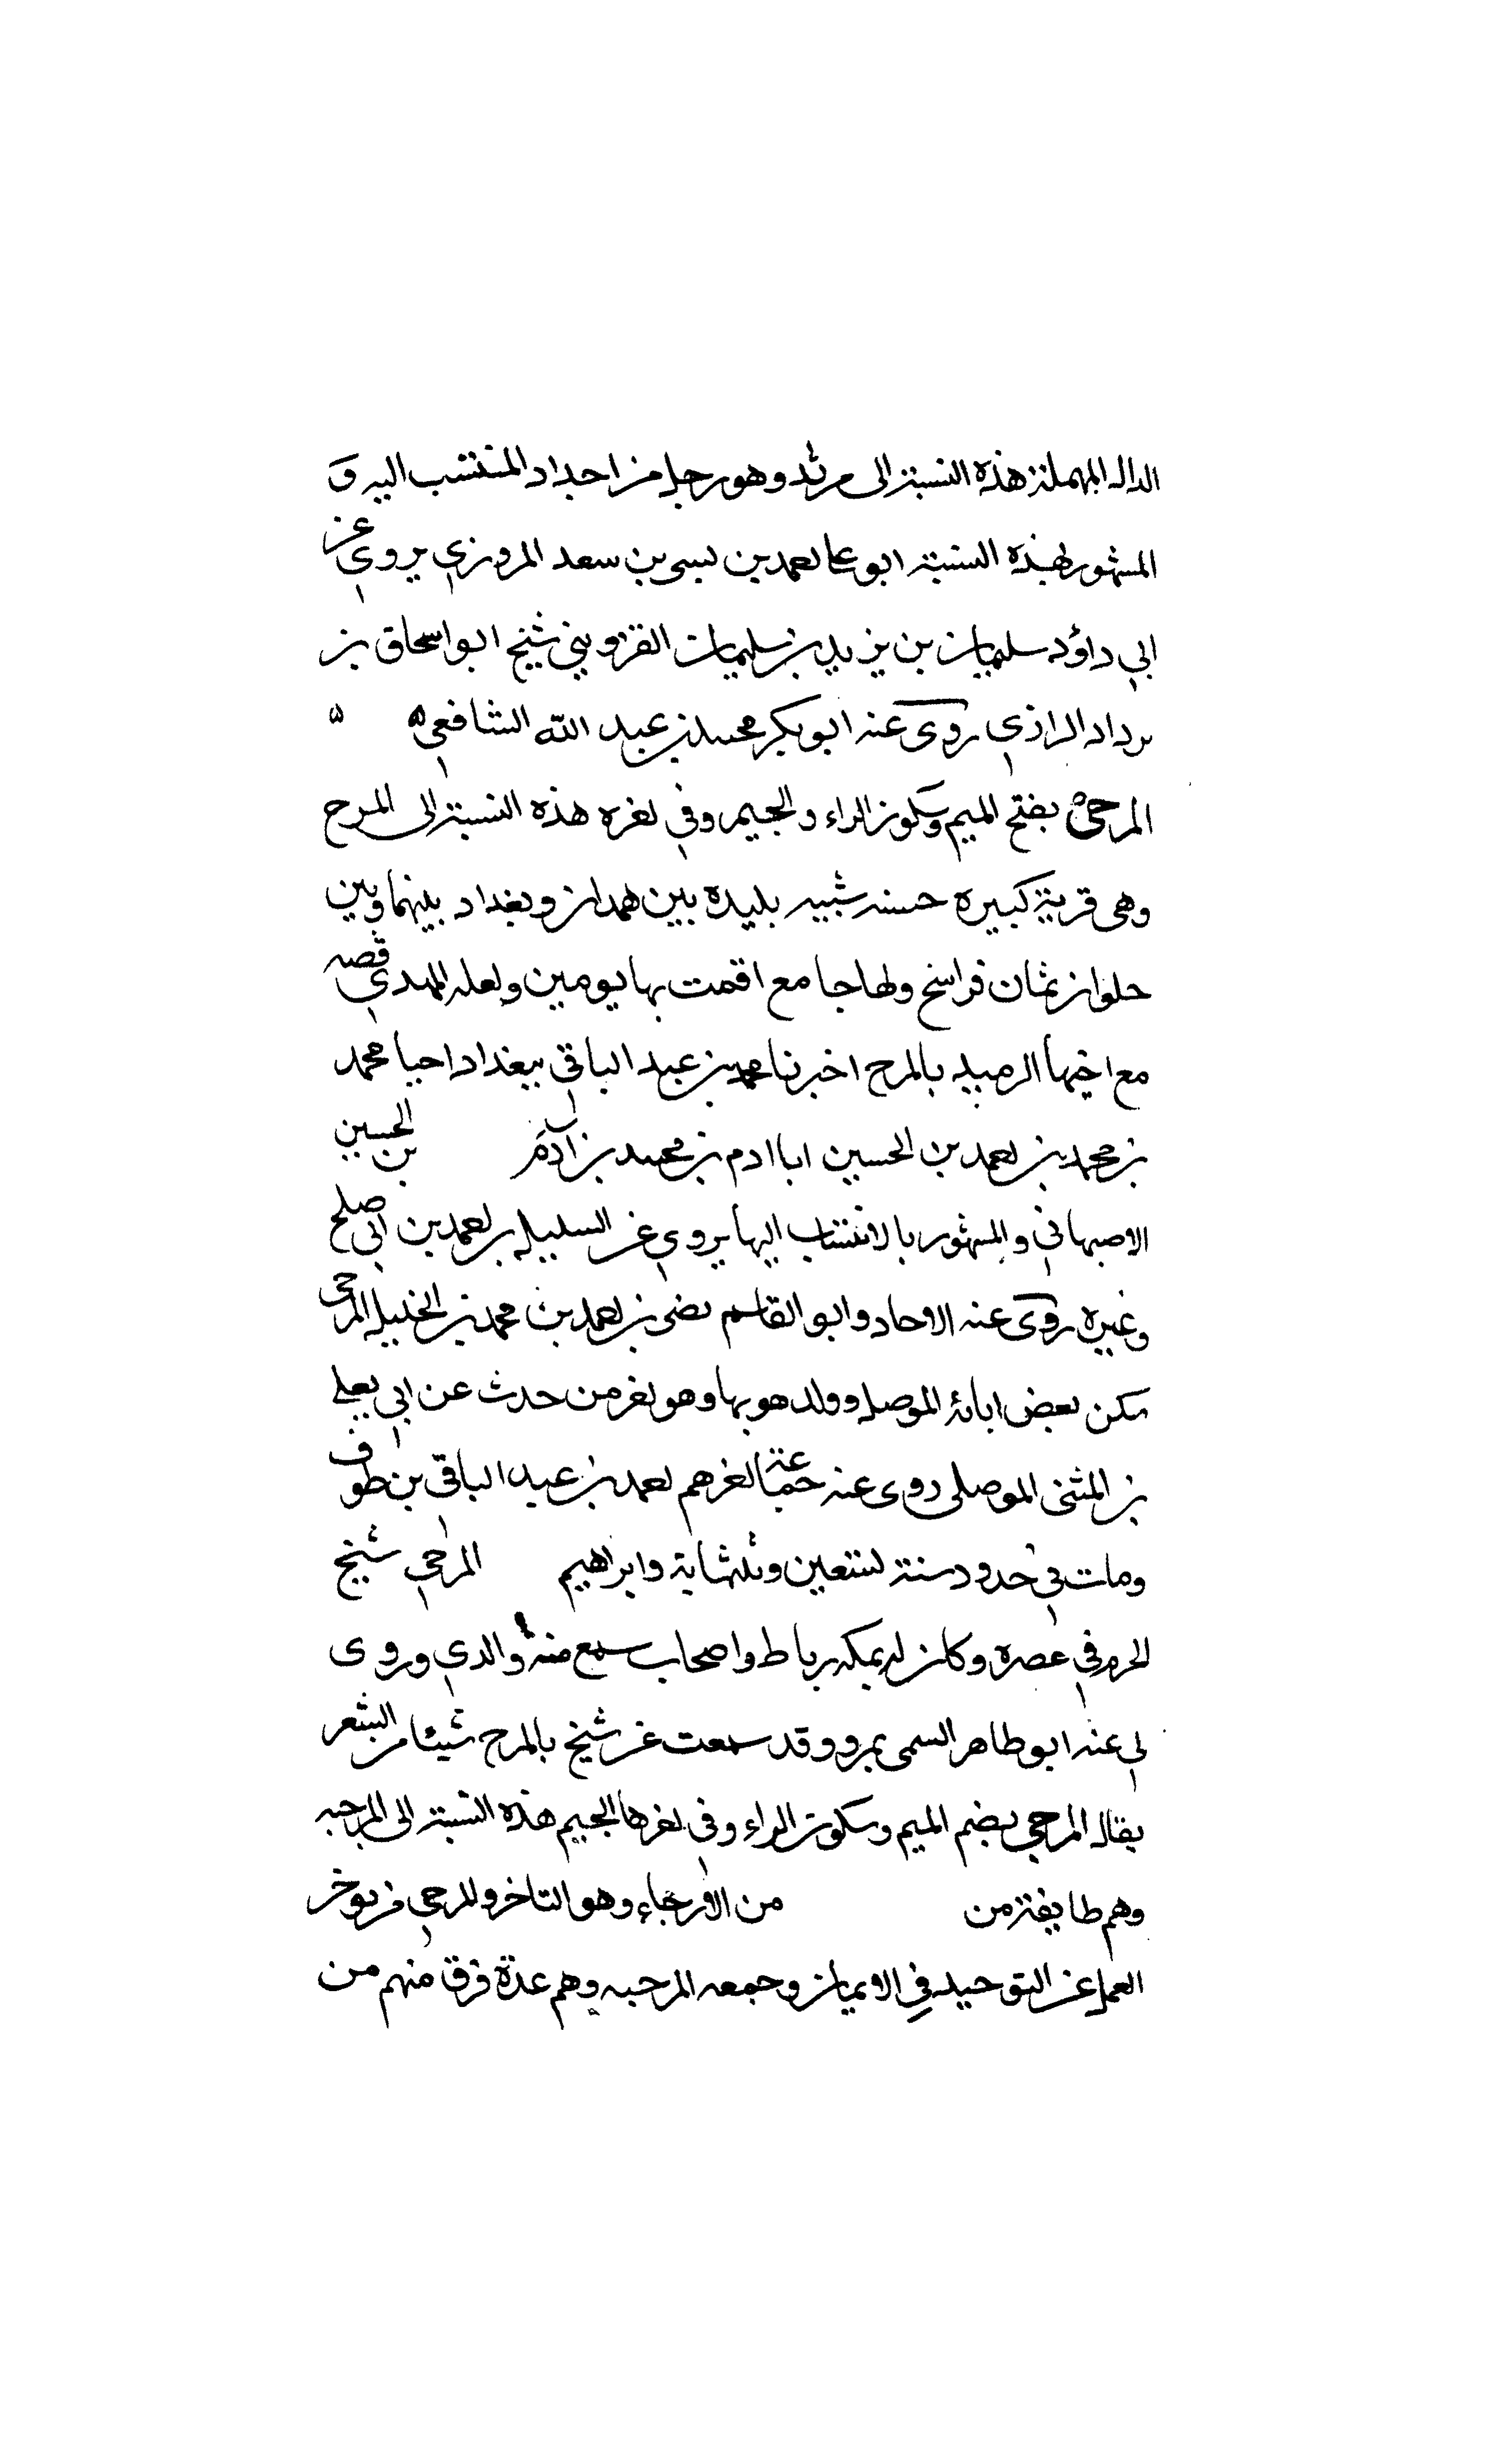 الدال المهملة هذه النسبة الى مرثد وهو رجل من اجداد المنتسب اليه و
المشهور بهذه النسبة ابو بن سعد المروزي يروي عن
ابي داؤد سليمان بن يزيد بن سليمان القزويني شيخ ابو اسحاق بن
الرازي روى عنه ابو بكر محمد بن عبد الله الشافعي ه ه
المرجى بفتح الميم وسكون الراء والجيم وفي لغره هذه النسبة الى المرج
وهى قرية كبيرة حسنه شبيه بليدة بين همدان وبغداد بينهما وبين
حلوان ثمان فراسخ ولها جامع اقمت بها يومين ولعله المهدي قصه
مع اخيها الرميله بالمرج اخبرنا محمد بن عبد الباقي ببغداد احبا محمد
بن محمد بن لعمد بن الحسين ابا ادم بن محمد بن آدم بن الحسين
الاصبهاني والمشهور بالانتساب اليها يروي عن السليل بن لعمد بن ابي صلح
وغيره روى عنه الاحاد وابو القاسم نصر بن لعمد بن محمد بن الخليل المرجى
سكن بعض ابائه الموصل وولد هو بها وهو لغر من حدث عن ابي يعلي
بن المثنى الموصلى روى عنه جماعة لغرهم لعمد بن عبد الباقي بن طوق
ومات في حدود سنة تسعين وثلثماية وابراهيم المرجي شيخ
الحرم في عصره وكان له بمكه رباط واصحاب سمع منه والدي وروى
لي عنه ابو طاهر السمى بمرو وقد سمعت عن شيخ بالمرج شيئا من الشعر
يقال المرجي بضم الميم وسكون الراء وفي لغرها الجيم هذه النسبة الى المرجيه
وهم طايفة من من الارجاء وهو التاخر والمرجي من يوخر
العمل عن التوحيد في الايمان وجمعه المرجيه وهم عدة فرق منهم من